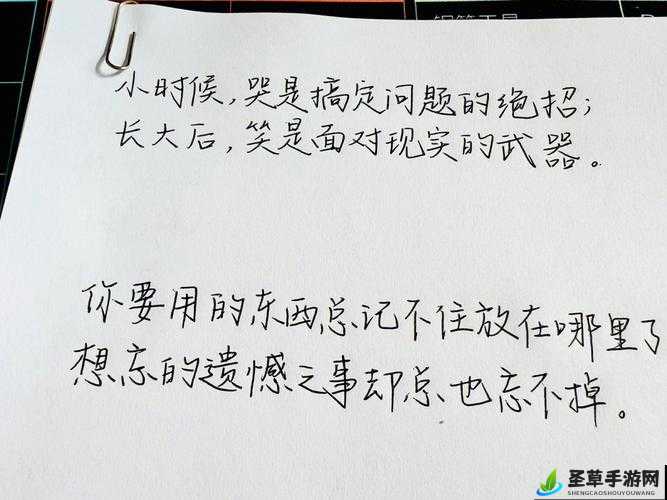 小时候，哭是搞定问题的绝招；
长大后，笑是面对现实的武器。
你要用的东西总记不住放在哪里了
想忘的遗憾之事却总也忘不掉。
圣草手游网
SHENGCAOSHOUYOUWANG